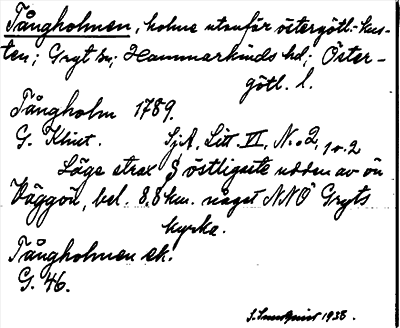 Tångholmen, holme utanför östergötl.-kus-
ten; Gryt sn; Hammarkinds hd; Öster-
götl. l.
Tångholm 1789.
G. Klint. SjA. Litt. VI, N:o 2, 1 o. 2
Läge strax S östligaste udden av ön
Väggön, bel. 8,8 km. något NNO Gryts
kyrka.
Tångholmen ek.
G. 46.
1938.